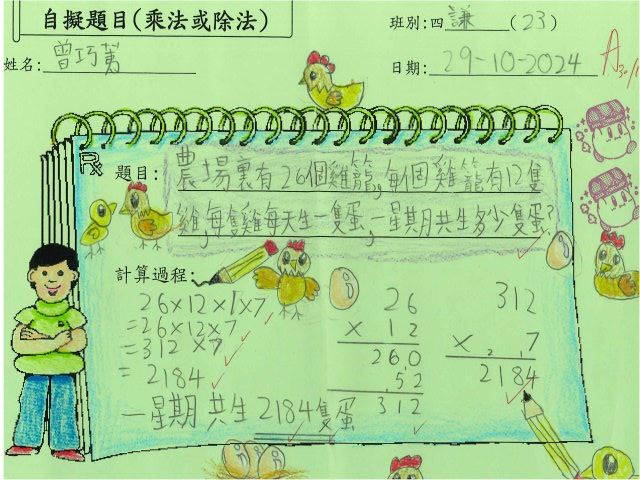 自擬題目(乘法或除法)
班別:四謙(23)
姓名:曾巧菁
日期:29-10-2024
A
題目:農場裏有26個雞籠,每個雞籠有12隻
雞,每隻雞每天生一隻蛋,一星期共生多少隻蛋?
計算過程:
26×12×1×7
=26×12×7
=312×7
=2184
26
× 12
260
52
312
312
× 7
2184
一星期共生2184隻蛋